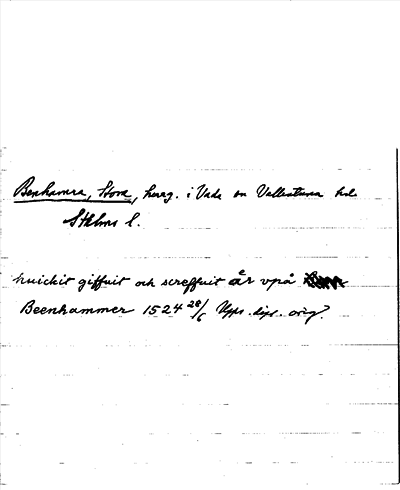 Benhamra, Stora, herrg. i Vada sn Vallentuna hd.
Sthlms l.
huickit giffuit och screffuit år vpå
Beenhammer 1524 28/6 Upps. dipl. orig.